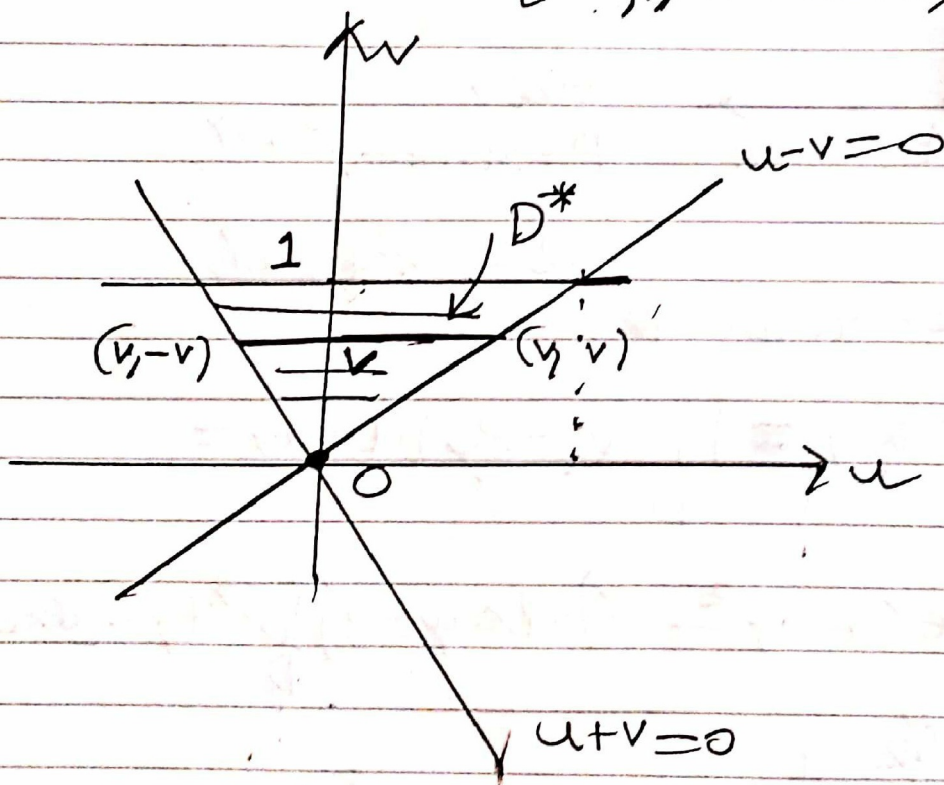 w
u-v=0
D*
1
(v,-v)
v
(v, v)
0
u
u+v=0